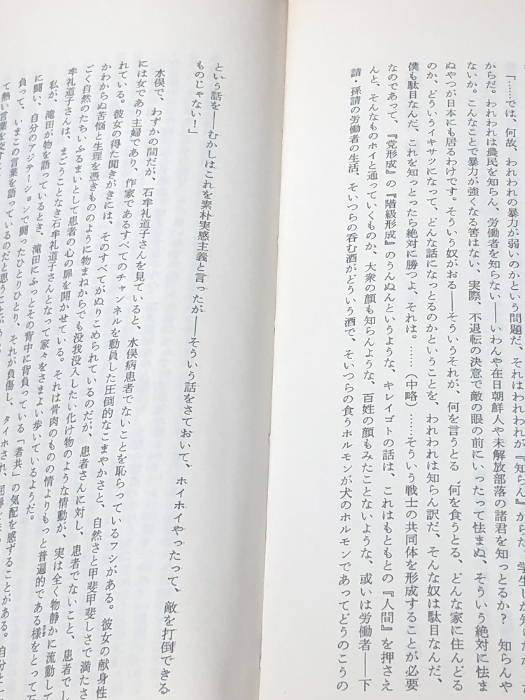 「……では、何故、われわれの暴力が弱いのかという問題だ、それはわれわれが『知らん』からだ。学生しか知
からだ。われわれは農民を知らん、労働者を知らない——いわんや在日朝鮮人や未解放部落の諸君を知っとるか？　知らんや
ないか。こんなことで暴力が強くなる筈はない、実際、不退転の決意で敵の眼の前にいったって怯まぬ、そういう絶対に怯ま
ぬやつが日本にも居るわけです。そういう奴がおる——そういうそれが、何を言うとる　何を食うとる、どんな家に住んどる
のか、どういうイキサツになって、どんな話になっとるのかということを、われわれは知らん訳だ、そんな奴は駄目なんだ、
僕も駄目なんだ、これを知っとったら絶対に勝つよ、それは。……（中略）……そういう戦士の共同体を形成することが必要
なのであって、『党形成』の『階級形成』のうんぬんというような、キレイゴトの話は、これはもともとの『人間』を押さえ
んと、そんなものホイと通っていくものか、大衆の顔も知らんような、百姓の顔もみたことないような、或いは労働者——下
請・孫請の労働者の生活、そいつらの呑む酒がどういう酒で、そいつらの食うホルモンが犬のホルモンであってどうのこうの
という話を——むかしはこれを素朴実感主義と言ったが——そういう話をさておいて、ホイホイやったって、敵を打倒できる
ものじゃない！」
水俣で、わずかの間だが、石牟礼道子さんを見ていると、水俣病患者でないことを恥らっているフシがある。彼女の献身性
には女であり主婦であり、作家であるすべてのチャンネルを動員した圧倒的なこまやかさと、自然さと甲斐甲斐しさで満たさ
れている。彼女の得た聞きがきには、そのすべてがぬりこめられているのだが、患者さんに対し、患者でないこと、患者でし
かわからぬ苦悩と生理を憑きもののように物まねからでも没我没入したい化け物のような情動が、実は全く物静かに流動し
ごく自然のたちいふるまいとして患者の心の扉を開かせている。それは骨肉のものの情よりもっと普遍的である様をとって石
牟礼道子さんは、まごうことなき石牟礼道子さんとなって家々をさまよい歩いているようだ。
私が、滝田が物を語っているとき、滝田にふっとその背中に背負っている「者共」の気配を感ずることがある。自分と
に闘い、自分のアジテーションで闘ったひとりひとり、それが負傷し、タイホされ、
負って、いまこの言葉を語っているのだと思うことが
て熱い言葉を